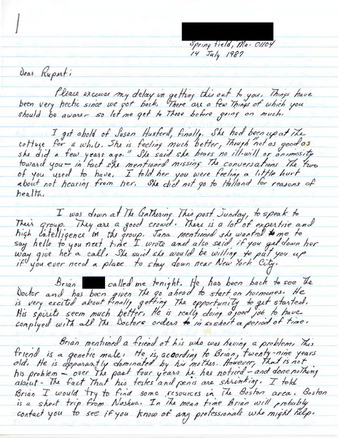 Springfield, Ma. 01104
14 July 1987
Dear Rupert:
Please excuse my delay in getting this out to you. Things have
been very hectic since we got back. There are a few things of which you
should be aware so let me get to those before going on much.
I got ahold of Susan Huxford, finally. She had been up at the
cottage for a while. She is feeling much better, though not as good as
she did a few years ago. She said she bears no ill-will or animosity
toward you - in fact she mentioned missing the conversations the two
of you used to have. I told her you were feeling a little hurt
about not hearing from her. She did not go to Holland for reasons of
health.
I was down at The Gathering this past Sunday, to speak to
their group. They are a good crowd. There is a lot of expertise and
high intelligence in the group. Jena mentioned she wanted me to
say hello to you next time I wrote and also said if you get down her
way give her a call. She said she would be willing to put you up
if you ever need a place to stay down near New York City.
Brian called me tonight. He has been back to see the
Doctor and has been given the go ahead to start on hormones. He
is very excited about finally getting the opportunity to get started.
His spirits seem much better. He is really doing a good job to have
complyed with all the Doctors orders in so short a period of time.
Brian mentioned a friend of his who was having a problem. This
friend is a genetic male. He is, according to Brian, twenty-nine years
old. He is apparantly dominated by his mother. However, that is not
his problem - over the past four years he has noticed - and done nothing
about - the fact that his testes and penis are shrinking. I told
Brian I would try to find some resources in the Boston area. Boston
is a short trip from Nashua. In the mean time Brian will probably
contact you to see if you know of any professionals who might help.